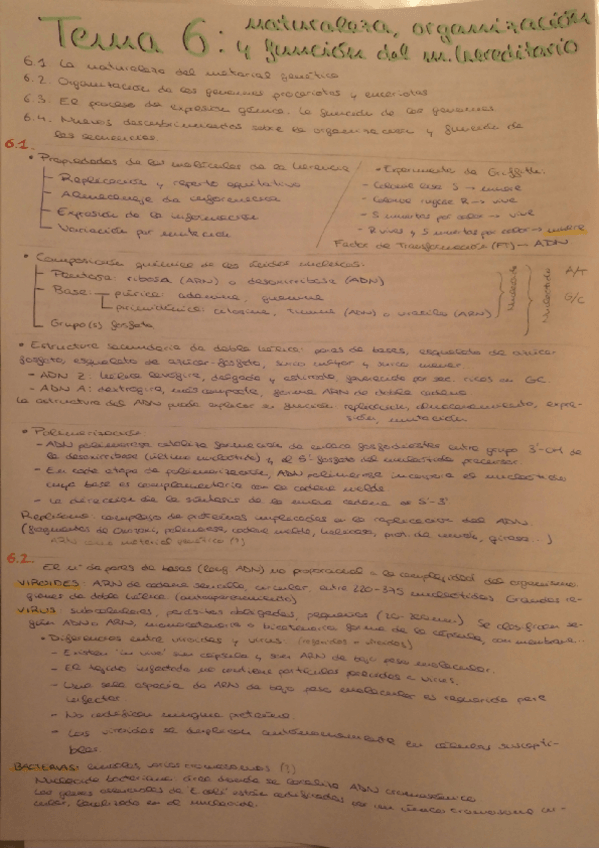 Tema 6: naturaleza, organización
y función del m. hereditario
6.1 La naturaleza del material genético
6.2. Organización de los genomas procariotas y eucariotas
6.3. El proceso de expresión génica. La función de los genomas
6.4. Nuevos descubrimientos sobre la organización y función de
las secuencias.
6.1.
• Propiedades de las moléculas de la herencia
- Replicación y reparto equitativo
- Almacenaje de información
- Expresión de la información
- Variación por mutación
• Experimento de Griffith:
- Colonia lisa S → muere
- Colonia rugosa R → vive
- S muertas por calor → vive
- R vivas y S muertas por calor → muere
Factor de Transformación (FT) → ADN
• Composición química de los ácidos nucleicos:
- Pentosa: ribosa (ARN) o desoxirribosa (ADN)
- Base: púrica: adenina, guanina
pirimidínica: citosina, timina (ADN) o uracilo (ARN)
- Grupo(s) fosfato
Nucleósido
Nucleótido
A/T
G/C
• Estructura secundaria de doble hélice: pares de bases, esqueleto de azúcar
fosfato, esqueleto de azúcar-fosfato, surco mayor y surco menor.
- ADN Z: hélice levógira, delgada y estirada, generado por sec. ricas en GC
- ADN A: dextrógira, más compacta, forma ARN de doble cadena
La estructura del ADN puede explicar su función: replicación, almacenamiento, expre-
sión, mutación.
• Polimerización:
- ADN polimerasa cataliza formación de enlace fosfodiéster entre grupo 3'-OH de
la desoxirribosa (último nucleótido) y el 5'-fosfato del nucleótido precursor.
- En cada etapa de polimerización, ADN polimerasa incorpora el nucleótido
cuya base es complementaria con la cadena molde
- La dirección de la síntesis de la nueva cadena es 5'-3'
Replisoma: complejo de proteínas implicadas en la replicación del ADN
(fragmentos de Okazaki, polimerasa, cadena molde, helicasa, girasa...)
ARN como material genético (?)
6.2.
El nº de pares de bases (long ADN) no proporcional a la complejidad del organismo
VIROIDES: ARN de cadena sencilla, circular, entre 220-375 nucleótidos. Grandes re-
giones de doble hélice
VIRUS: subcelulares, parásitos obligados, pequeños. Se clasifican se-
gún ADN o ARN, monocatenario o bicatenario, forma de la cápsula, con membrana...
• Diferencias entre viroides y virus
- Existen 'in vivo' sin cápsula y son ARN de bajo peso molecular.
- El tejido infectado no contiene partículas parecidas a virus.
- Una sola especie de ARN de bajo peso molecular es requerida para
infectar
- No codifican ninguna proteína.
- Los viroides se replican autónomamente en células suscepti-
bles.
BACTERIAS: varios cromosomas (?)
Nucleoide bacteriano: área donde se localiza ADN cromosómico
Los genes esenciales de E. coli están codificados por un único cromosoma cir-
cular, localizado en el nucleoide.